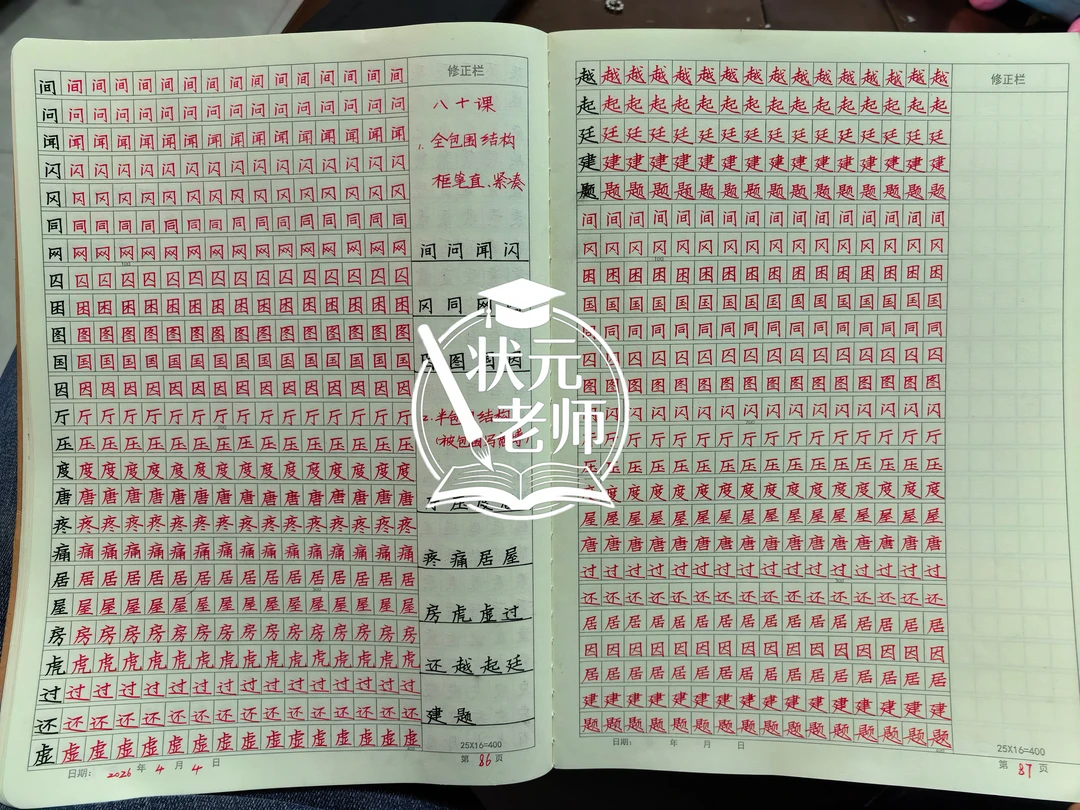 间间间间间间间间间间间间间间间间
问问问问问问问问问问问问问问问问
闻闻闻闻闻闻闻闻闻闻闻闻闻闻闻闻
闪闪闪闪闪闪闪闪闪闪闪闪闪闪闪闪
冈冈冈冈冈冈冈冈冈冈冈冈冈冈冈冈
同同同同同同同同同同同同同同同同
网网网网网网网网网网网网网网网网
100
囚囚囚囚囚囚囚囚囚囚囚囚囚囚囚囚
困困困困困困困困困困困困困困困困
图图图图图图图图图图图图图图图图
国国国国国国国国国国国国国国国国
因因因因因因因因因因因因因因因因
厅厅厅厅厅厅厅厅厅厅厅厅厅厅厅厅
200
压压压压压压压压压压压压压压压压
度度度度度度度度度度度度度度度度
唐唐唐唐唐唐唐唐唐唐唐唐唐唐唐唐
疼疼疼疼疼疼疼疼疼疼疼疼疼疼疼疼
痛痛痛痛痛痛痛痛痛痛痛痛痛痛痛痛
居居居居居居居居居居居居居居居居
300
屋屋屋屋屋屋屋屋屋屋屋屋屋屋屋屋
房房房房房房房房房房房房房房房房
虎虎虎虎虎虎虎虎虎虎虎虎虎虎虎虎
过过过过过过过过过过过过过过过过
还还还还还还还还还还还还还还还还
虚虚虚虚虚虚虚虚虚虚虚虚虚虚虚虚
日期: 2026 年 4 月 4 日
修正栏
八十课
1. 全包围结构
框笔直、紧凑
间问闻闪
冈同网
图国因
2. 半包围结构
疼痛居屋
房虎虚过
还越起廷
建题
25X16=400
第 86 页
状元
老师
越越越越越越越越越越越越越越越越
起起起起起起起起起起起起起起起起
廷廷廷廷廷廷廷廷廷廷廷廷廷廷廷廷
建建建建建建建建建建建建建建建建
题题题题题题题题题题题题题题题题
间间间间间间间间间间间间间间间间
冈冈冈冈冈冈冈冈冈冈冈冈冈冈冈冈
100
困困困困困困困困困困困困困困困困
国国国国国国国国国国国国国国国国
同同同同同同同同同同同同同同同
囚囚囚囚囚囚囚囚囚囚囚囚囚囚囚囚
图图图图图图图图图图图图图图图图
闪闪闪闪闪闪闪闪闪闪闪闪闪闪闪闪
200
厅厅厅厅厅厅厅厅厅厅厅厅厅厅厅厅
压压压压压压压压压压压压压压压压
度度度度度度度度度度度度度度度度
屋屋屋屋屋屋屋屋屋屋屋屋屋屋屋屋
唐唐唐唐唐唐唐唐唐唐唐唐唐唐唐唐
过过过过过过过过过过过过过过过过
300
还还还还还还还还还还还还还还还还
居居居居居居居居居居居居居居居居
因因因因因因因因因因因因因因因因
居居居居居居居居居居居居居居居居
建建建建建建建建建建建建建建建建
题题题题题题题题题题题题题题题题
日期: 年 月 日
修正栏
25X16=400
第 87 页